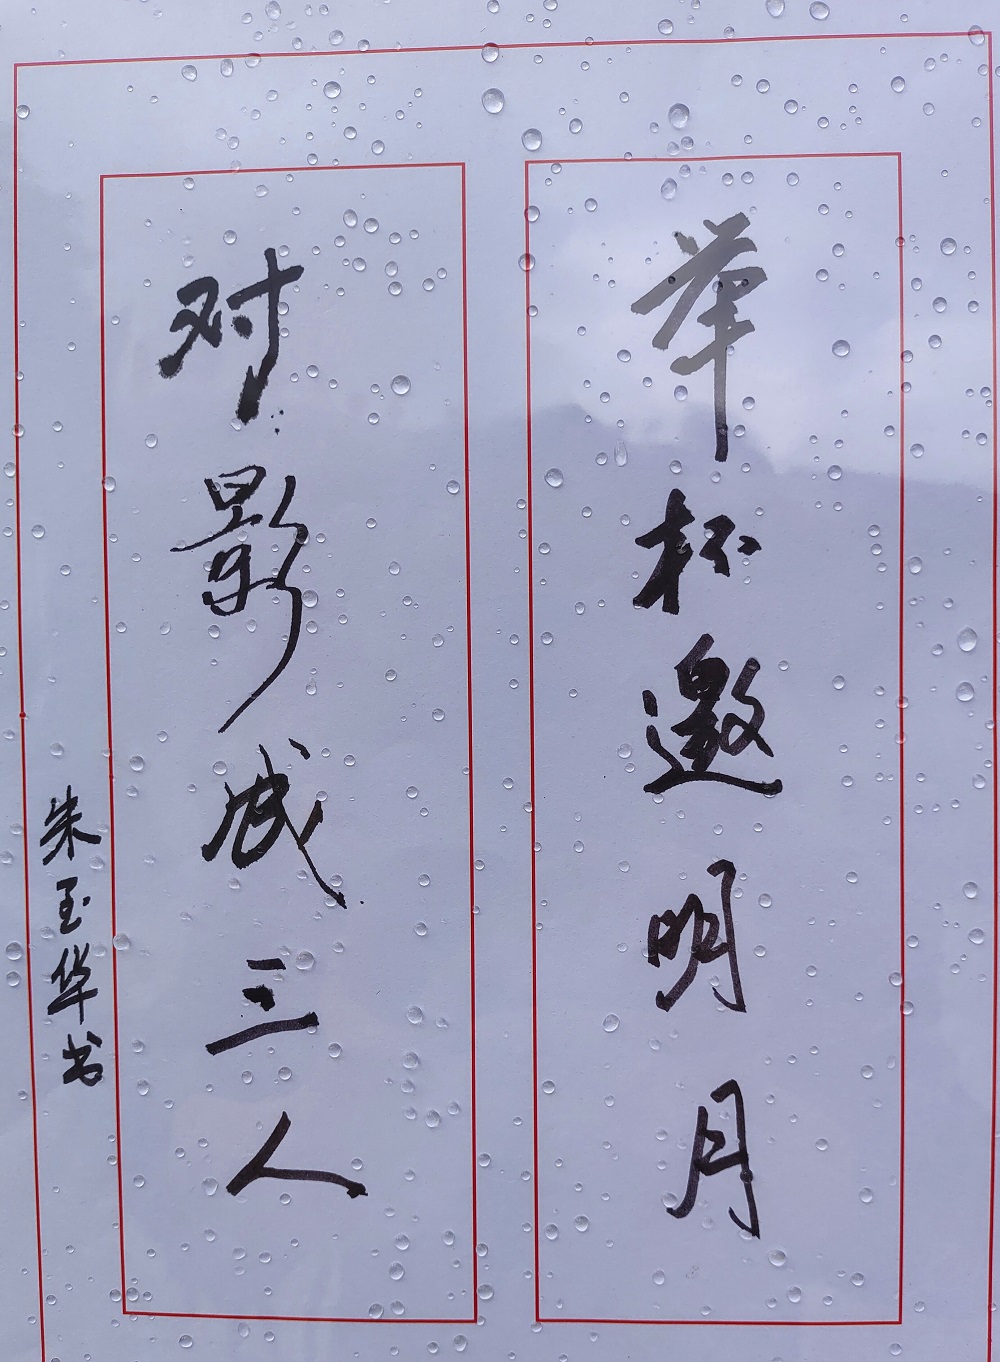 举杯邀明月
对影成三人
朱玉华书